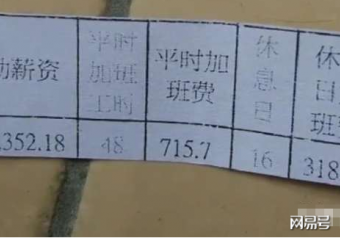 勤薪资
平时
加班
工时
平时加
班费
休
息
日
休
日
班
352.18
48
715.7
16
318
网易号